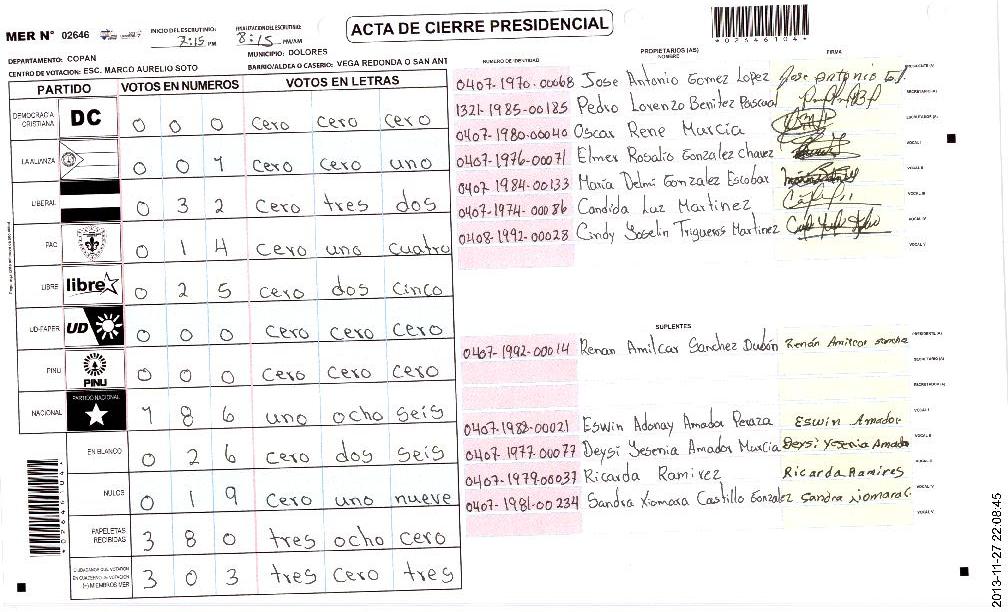 MER N° 02646
INICIO DEL ESCRUTINIO: 7:15 PM
FINALIZACION DEL ESCRUTINIO: 8:15 PM/AM
ACTA DE CIERRE PRESIDENCIAL
DEPARTAMENTO: COPAN
MUNICIPIO: DOLORES
CENTRO DE VOTACION: ESC. MARCO AURELIO SOTO
BARRIO/ALDEA O CASERIO: VEGA REDONDA O SAN ANT
PARTIDO VOTOS EN NUMEROS VOTOS EN LETRAS
DEMOCRACIA CRISTIANA DC 0 0 0 cero cero cero
LA ALIANZA 0 0 1 cero cero uno
LIBERAL 0 3 2 cero tres dos
PAC 0 1 4 cero uno cuatro
LIBRE libre 0 2 5 cero dos cinco
UD-FAPER UD 0 0 0 cero cero cero
PINU PINU 0 0 0 cero cero cero
NACIONAL PARTIDO NACIONAL 1 8 6 uno ocho seis
EN BLANCO 0 2 6 cero dos seis
NULOS 0 1 9 cero uno nueve
PAPELETAS RECIBIDAS 3 8 0 tres ocho cero
CIUDADANOS QUE VOTARON EN CUADERNO DE VOTACION (+) MIEMBROS MER 3 0 3 tres cero tres
PROPIETARIOS (AS)
NUMERO DE IDENTIDAD NOMBRE FIRMA
0407-1970-00068 Jose Antonio Gomez Lopez Jose Antonio G.L. PRESIDENTE (A)
1321-1985-00185 Pedro Lorenzo Benitez Pascual SECRETARIO (A)
0407-1980-00040 Oscar Rene Murcia ESCRUTADOR (A)
0407-1976-00071 Elmer Rosalio Gonzalez Chavez VOCAL I
0407-1984-00133 Maria Delmi Gonzalez Escobar VOCAL II
0407-1974-00086 Candida Luz Martinez VOCAL III
0408-1992-00028 Cindy Yoselin Trigueros Martinez VOCAL IV
VOCAL V
SUPLENTES
0407-1992-00014 Renan Amilcar Sanchez Dubón Renán Amilcar Sanche PRESIDENTE (A)
SECRETARIO (A)
ESCRUTADOR (A)
0407-1988-00021 Eswin Adonay Amador Peraza Eswin Amador VOCAL I
0407-1977-00077 Deysi Yesenia Amador Murcia Deysi Yesenia Amado VOCAL II
0407-1979-00037 Ricarda Ramirez Ricarda Ramires VOCAL III
0407-1981-00234 Sandra Xiomara Castillo Gonzalez Sandra Xiomara C. VOCAL IV
VOCAL V
2013-11-27 22:08:45